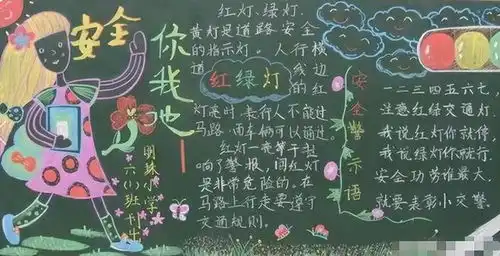 安全
你我他
明珠小学
六(1)班
红灯.绿灯.
黄灯是道路安全
的指示灯。人行横
道
线边
的红
红绿灯
灯亮时,表行人不能过
马路,而车辆可以通过,
红灯一亮等于敲
响了警报,闯红灯
是非常危险的.在
马路上行走要遵守
交通规则。
安全警示语
一二三四五六七,
注意红绿交通灯.
我说红灯你就停,
我说绿灯你就行.
安全功劳谁最大,
就要表彰小交警.